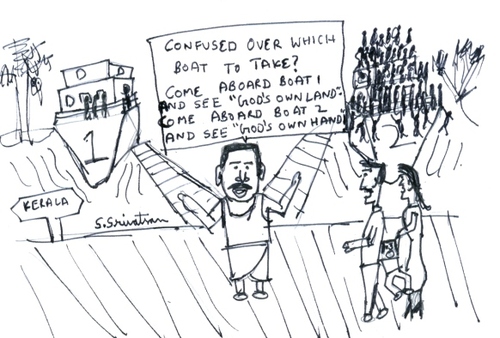 CONFUSED OVER WHICH
BOAT TO TAKE?
COME ABOARD BOAT 1
AND SEE "GOD'S OWN LAND".
COME ABOARD BOAT 2
AND SEE "GOD'S OWN HAND"
D D
D
1
2
KERALA
S. Srivatsan